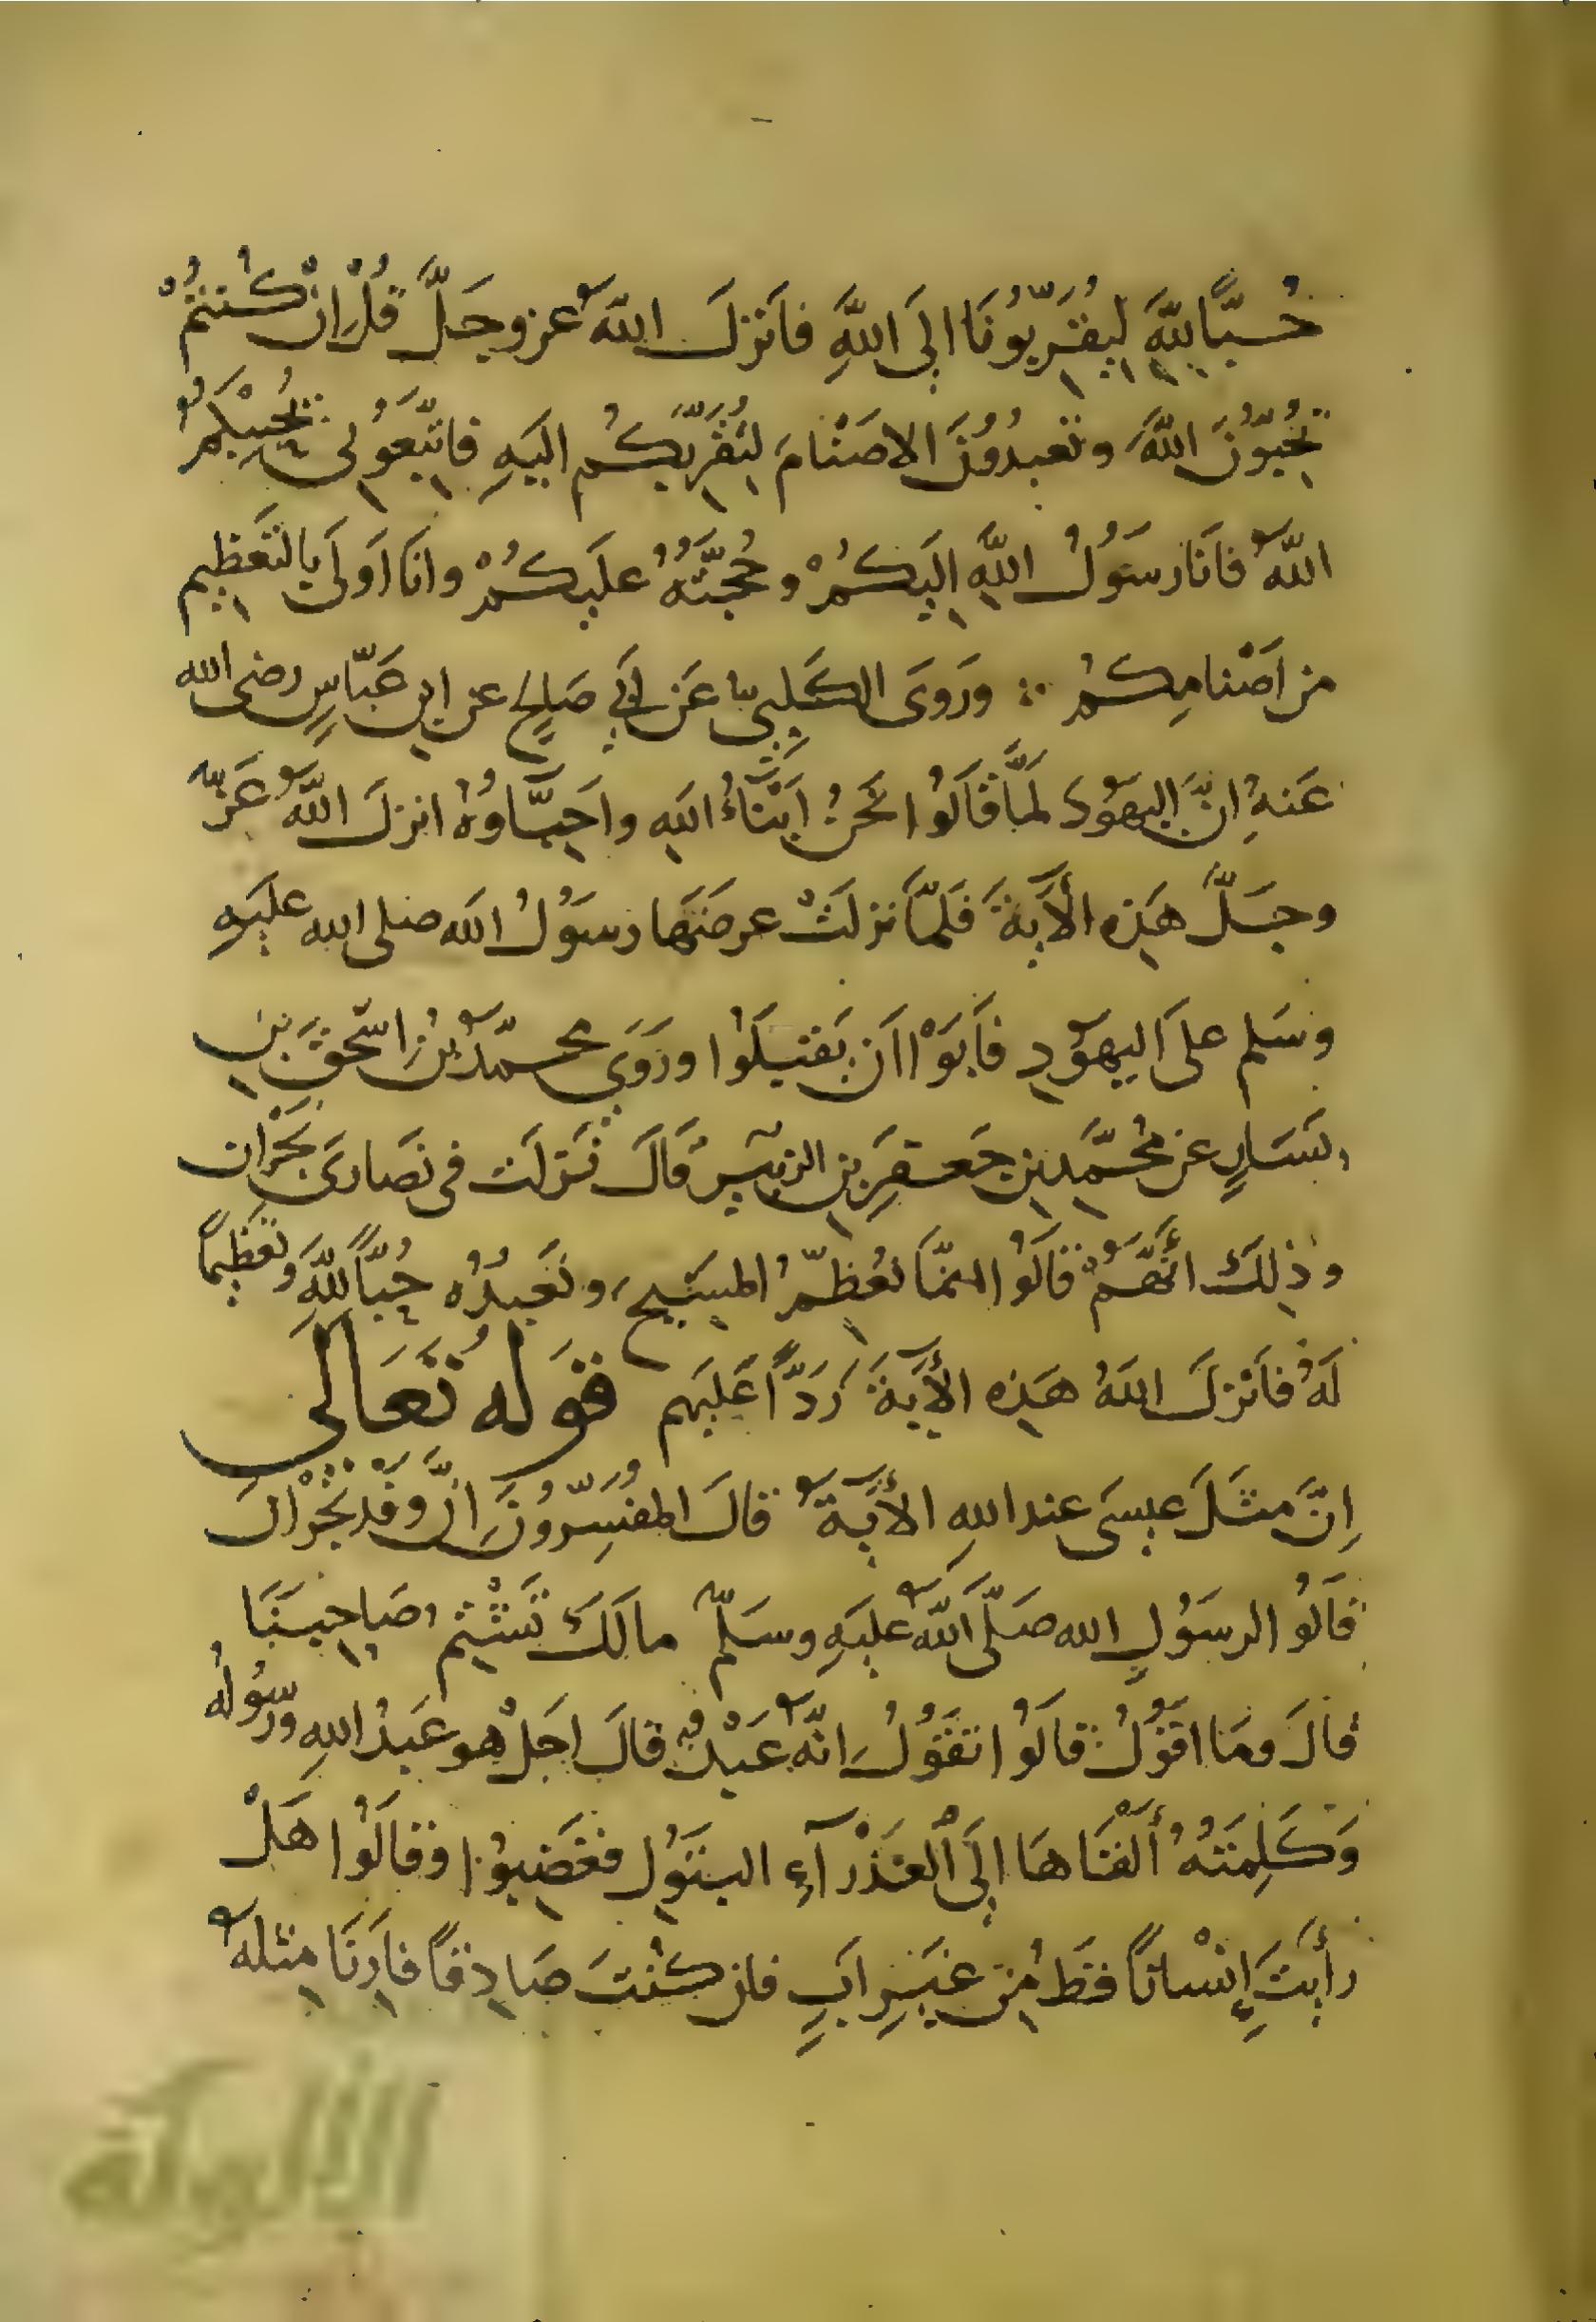 حُبًّا لِلَّهِ لِيُقَرِّبُونَا اِلَى اللَّهِ فاَنْزلَ اللَّهُ عز وجَلَّ قُلْ اِنْ كُنْتُمْ
تُحِبُّوُنَ اللَّهَ وتعبدُوُنَ الاصْنَامَ لِتُقَرِّبَكُم اليَهِ فاتَّبَعُوُنِى يُحْبِبْكمُ
اللَّهُ فاَنَا رسَوُلُ اللَّهِ اِليَكُمْ وحُجَّتُهُ علَيكُمْ وانَا اَوَلَى بِالتَعَظِيم
من اَصْنامِكمُ ∴ ورَوَى الكَلِبىُّ عَن اَبِى صَالِحٍ عن ابِن عَبّاسٍ رضى الله
عَنهُ انَّ اليهَوُدَ لَمَّا قَالَوُا نَحَنُ اَبْنَاءُ اللهِ واَحِبَّاوُهُ انزلَ اللَّهُ عَزَّ
وجَلَّ هَذِه الأَيَةَ فَلَمَّا نزلَتْ عرضَهَا رسَوُلُ الله صلى الله عليَهِ
وسَلم علىَ اليهَوُدِ فاَبَوْا اَن يَقَبلَوُا ورَوَى محمدُّ بنُ اِسحٰقَ بنِ
يسَارٍ عن محُمَّدِ بنِ جَعفرِ بنِ الزبيَرِ قَالَ نَزلَت فى نصَارىَ نَجْرَان
وذِلكَ اَنَّهَمُ قالَوُا انمَّا نعُظِّمُ المسَيِحَ ونَعبدُه حُبًّا لِلَّهِ وتَعَظِيماً
لَهُ فاَنْزلَ اللهَُ هَذِه الأَيَةَ رَدًّا عَلَيهم قوَلهُ تَعَالَى
اِنَّ مثَلَ عيسَى عند اللهِ الأَيَةَ قالَ المفُسِّروُنَ اِنَّ وَفْدَ نَجْرَانَ
قالَوُا لرسَوُلِ الله صَلَّى اللَّهُ عليَهِ وسَلّم مالَكَ تَشْتِم صَاحِبَنَا
قالَ ومَا اقَوُلُ قالَوُا تقَوُلُ انّهُ عَبْدٌ قالَ اجَلْ هو عَبدُ اللهِ ورسوُلهُ
وَكَلِمَتُهُ أَلْقَاهَا إِلَى الْعَذْرَآءِ البتَوُلِ فغَضِبوُا وقالَوُا هَلْ
رأَيتَ إِنْسانًا قَط مِن غيَرِ ابٍ فان كنُتَ صَادِقاً فاَرِنَا مِثلهُ
الألوكة